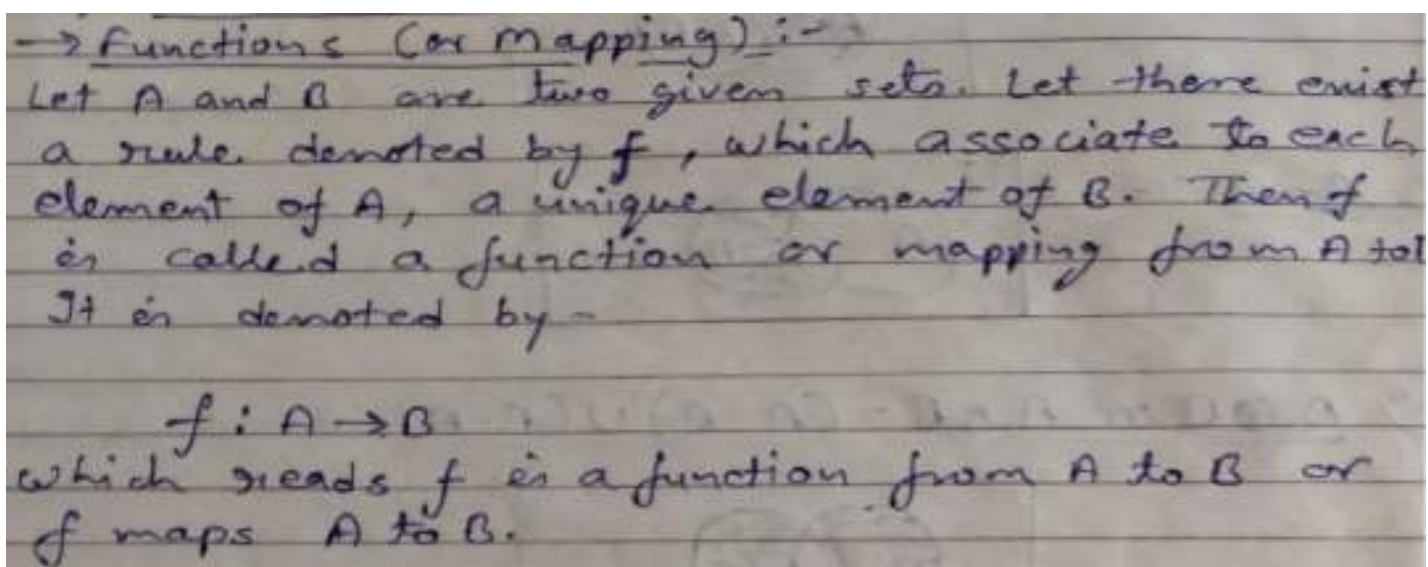 → Functions (or mapping) :-
Let A and B are two given sets. Let there exist
a rule denoted by f, which associate to each
element of A, a unique element of B. Then f
is called a function or mapping from A to
It is denoted by -
f : A → B
which reads f is a function from A to B or
f maps A to B.